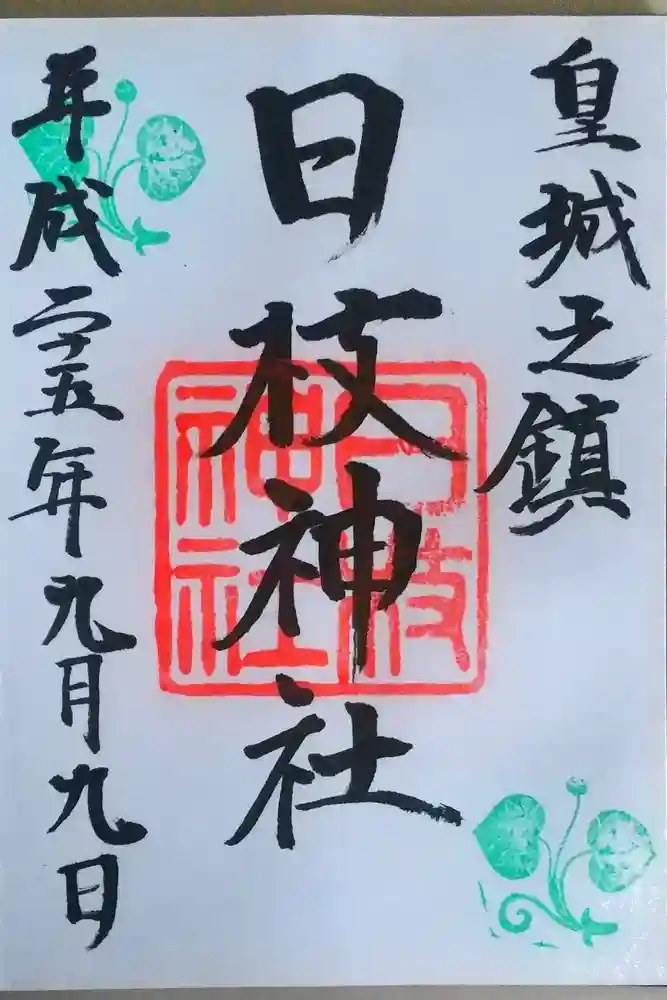 皇城之鎮
日枝神社
日枝神社
平成二十五年九月九日